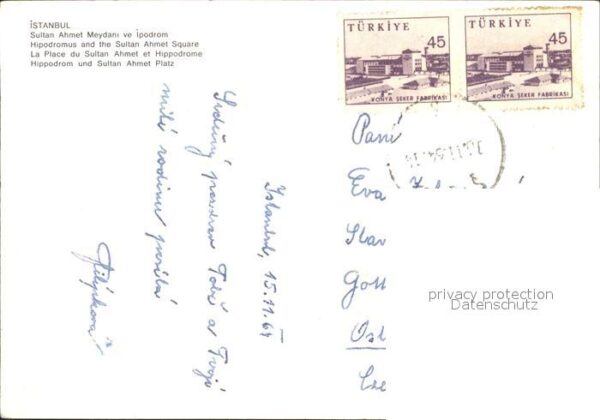 İSTANBUL
Sultan Ahmet Meydanı ve İpodrom
Hipodromus and the Sultan Ahmet Square
La Place du Sultan Ahmet et Hippodrome
Hippodrom und Sultan Ahmet Platz
TÜRKİYE 45
KONYA ŞEKER FABRİKASI
TÜRKİYE 45
KONYA ŞEKER FABRİKASI
Istanbul, 15.11.64
Srdečný pozdrav Tobě a Tvojí
milé rodince posílá
Paní
Eva
Slav
Gott
Ost
privacy protection
Datenschutz